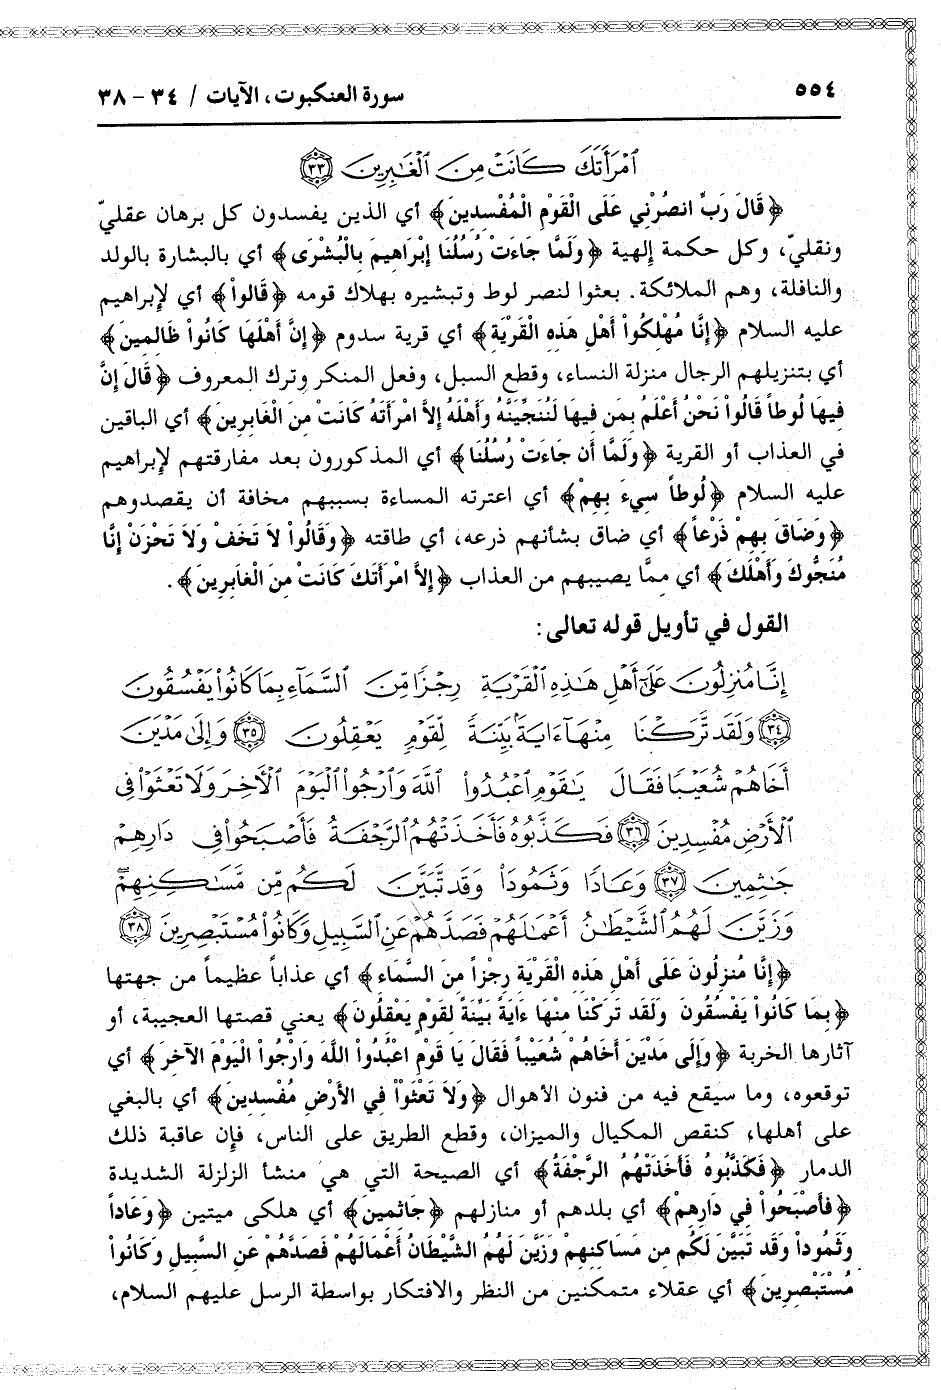 ٥٥٤ سورة العنكبوت، الآيات / ٣٤ - ٣٨
ٱمْرَأَتَكَ كَانَتْ مِنَ ٱلْغَٰبِرِينَ ٣٣
﴿قَالَ رَبِّ انصُرْنِي عَلَى الْقَوْمِ الْمُفْسِدِينَ﴾ أي الذين يفسدون كل برهان عقليّ
ونقليّ، وكل حكمة إلهية ﴿وَلَمَّا جَاءَتْ رُسُلُنَا إِبْرَاهِيمَ بِالْبُشْرَى﴾ أي بالبشارة بالولد
والنافلة، وهم الملائكة. بعثوا لنصر لوط وتبشيره بهلاك قومه ﴿قَالُواْ﴾ أي لإبراهيم
عليه السلام ﴿إِنَّا مُهْلِكُواْ أَهْلِ هَذِهِ الْقَرْيَةِ﴾ أي قرية سدوم ﴿إِنَّ أَهْلَهَا كَانُواْ ظَالِمِينَ﴾
أي بتنزيلهم الرجال منزلة النساء، وقطع السبل، وفعل المنكر وترك المعروف ﴿قَالَ إِنَّ
فِيهَا لُوطاً قَالُواْ نَحْنُ أَعْلَمُ بِمَن فِيهَا لَنُنَجِّيَنَّهُ وَأَهْلَهُ إِلاَّ امْرَأَتَهُ كَانَتْ مِنَ الْغَابِرِينَ﴾ أي الباقين
في العذاب أو القرية ﴿وَلَمَّا أَن جَاءَتْ رُسُلُنَا﴾ أي المذكورون بعد مفارقتهم لإبراهيم
عليه السلام ﴿لُوطاً سِيءَ بِهِمْ﴾ أي اعترته المساءة بسببهم مخافة أن يقصدوهم
﴿وَضَاقَ بِهِمْ ذَرْعاً﴾ أي ضاق بشأنهم ذرعه، أي طاقته ﴿وَقَالُواْ لاَ تَخَفْ وَلاَ تَحْزَنْ إِنَّا
مُنَجُّوكَ وَأَهْلَكَ﴾ أي ممَّا يصيبهم من العذاب ﴿إِلاَّ امْرَأَتَكَ كَانَتْ مِنَ الْغَابِرِينَ﴾.
القول في تأويل قوله تعالى:
إِنَّا مُنزِلُونَ عَلَىٰٓ أَهْلِ هَٰذِهِ ٱلْقَرْيَةِ رِجْزًا مِّنَ ٱلسَّمَآءِ بِمَا كَانُوا۟ يَفْسُقُونَ
٣٤ وَلَقَد تَّرَكْنَا مِنْهَآ ءَايَةًۢ بَيِّنَةً لِّقَوْمٍ يَعْقِلُونَ ٣٥ وَإِلَىٰ مَدْيَنَ
أَخَاهُمْ شُعَيْبًا فَقَالَ يَٰقَوْمِ ٱعْبُدُوا۟ ٱللَّهَ وَٱرْجُوا۟ ٱلْيَوْمَ ٱلْأَخِرَ وَلَا تَعْثَوْا۟ فِى
ٱلْأَرْضِ مُفْسِدِينَ ٣٦ فَكَذَّبُوهُ فَأَخَذَتْهُمُ ٱلرَّجْفَةُ فَأَصْبَحُوا۟ فِى دَارِهِمْ
جَٰثِمِينَ ٣٧ وَعَادًا وَثَمُودَا۟ وَقَد تَّبَيَّنَ لَكُم مِّن مَّسَٰكِنِهِمْ
وَزَيَّنَ لَهُمُ ٱلشَّيْطَٰنُ أَعْمَٰلَهُمْ فَصَدَّهُمْ عَنِ ٱلسَّبِيلِ وَكَانُوا۟ مُسْتَبْصِرِينَ ٣٨
﴿إِنَّا مُنزِلُونَ عَلَى أَهْلِ هَذِهِ الْقَرْيَةِ رِجْزاً مِنَ السَّمَاءِ﴾ أي عذاباً عظيماً من جهتها
﴿بِمَا كَانُواْ يَفْسُقُونَ وَلَقَد تَرَكْنَا مِنْهَا ءَايَةً بَيِّنَةً لِقَوْمٍ يَعْقِلُونَ﴾ يعني قصتها العجيبة، أو
آثارها الخربة ﴿وَإِلَى مَدْيَنَ أَخَاهُمْ شُعَيْباً فَقَالَ يَا قَوْمِ اعْبُدُواْ اللَّهَ وَارْجُواْ الْيَوْمَ الآخِرَ﴾ أي
توقعوه، وما سيقع فيه من فنون الأهوال ﴿وَلاَ تَعْثَوْاْ فِي الأَرْضِ مُفْسِدِينَ﴾ أي بالبغي
على أهلها، كنقص المكيال والميزان، وقطع الطريق على الناس، فإن عاقبة ذلك
الدمار ﴿فَكَذَّبُوهُ فَأَخَذَتْهُمُ الرَّجْفَةُ﴾ أي الصيحة التي هي منشأ الزلزلة الشديدة
﴿فَأَصْبَحُواْ فِي دَارِهِمْ﴾ أي بلدهم أو منازلهم ﴿جَاثِمِينَ﴾ أي هلكى ميتين ﴿وَعَاداً
وَثَمُوداْ وَقَد تَبَيَّنَ لَكُم مِن مَسَاكِنِهِمْ وَزَيَّنَ لَهُمُ الشَّيْطَانُ أَعْمَالَهُمْ فَصَدَّهُمْ عَنِ السَّبِيلِ وَكَانُواْ
مُسْتَبْصِرِينَ﴾ أي عقلاء متمكنين من النظر والافتكار بواسطة الرسل عليهم السلام،